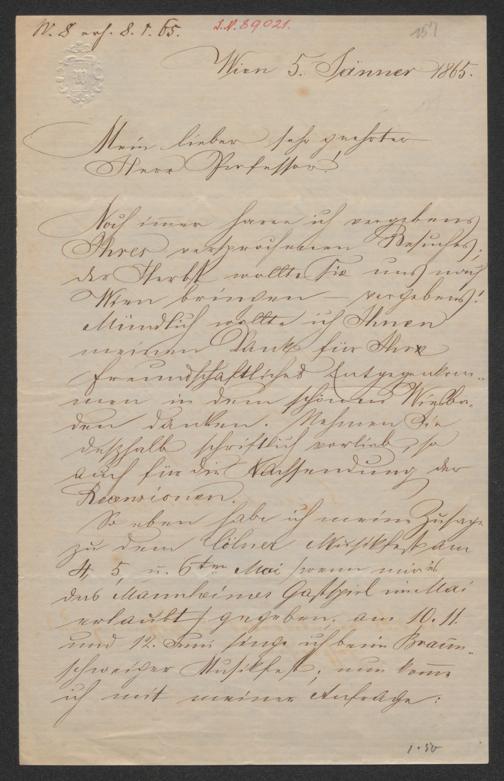 W. 8 erh. 8. 1. 65.
I.N. 89021.
157
Wien 5. Jänner 1865.
Mein lieber sehr geehrter
Herr Professor!
Noch immer harre ich vergebens
Ihres versprochenen Besuches,
der Herbst wollte Sie uns nach
Wien bringen – vergebens!
Mündlich wollte ich Ihnen
meinen Dank für Ihre
freundschaftliches Entgegenkom-
men in dem schönen Wiesba-
den danken. Nehmen Sie
desshalb schriftlich vorlieb, so
auch für die Nachsendung der
Recensionen.
So eben habe ich meine Zusage
zu dem Cölner Musikfest am
4, 5, u. 6ten Mai (wenn mir's
das Mannheimer Gastspiel im Mai
erlaubt) gegeben. am 10. 11.
und 12. Juni singe ich beim Braun-
schweiger Musikfest, nun komme
ich mit meiner Anfrage:
1·50